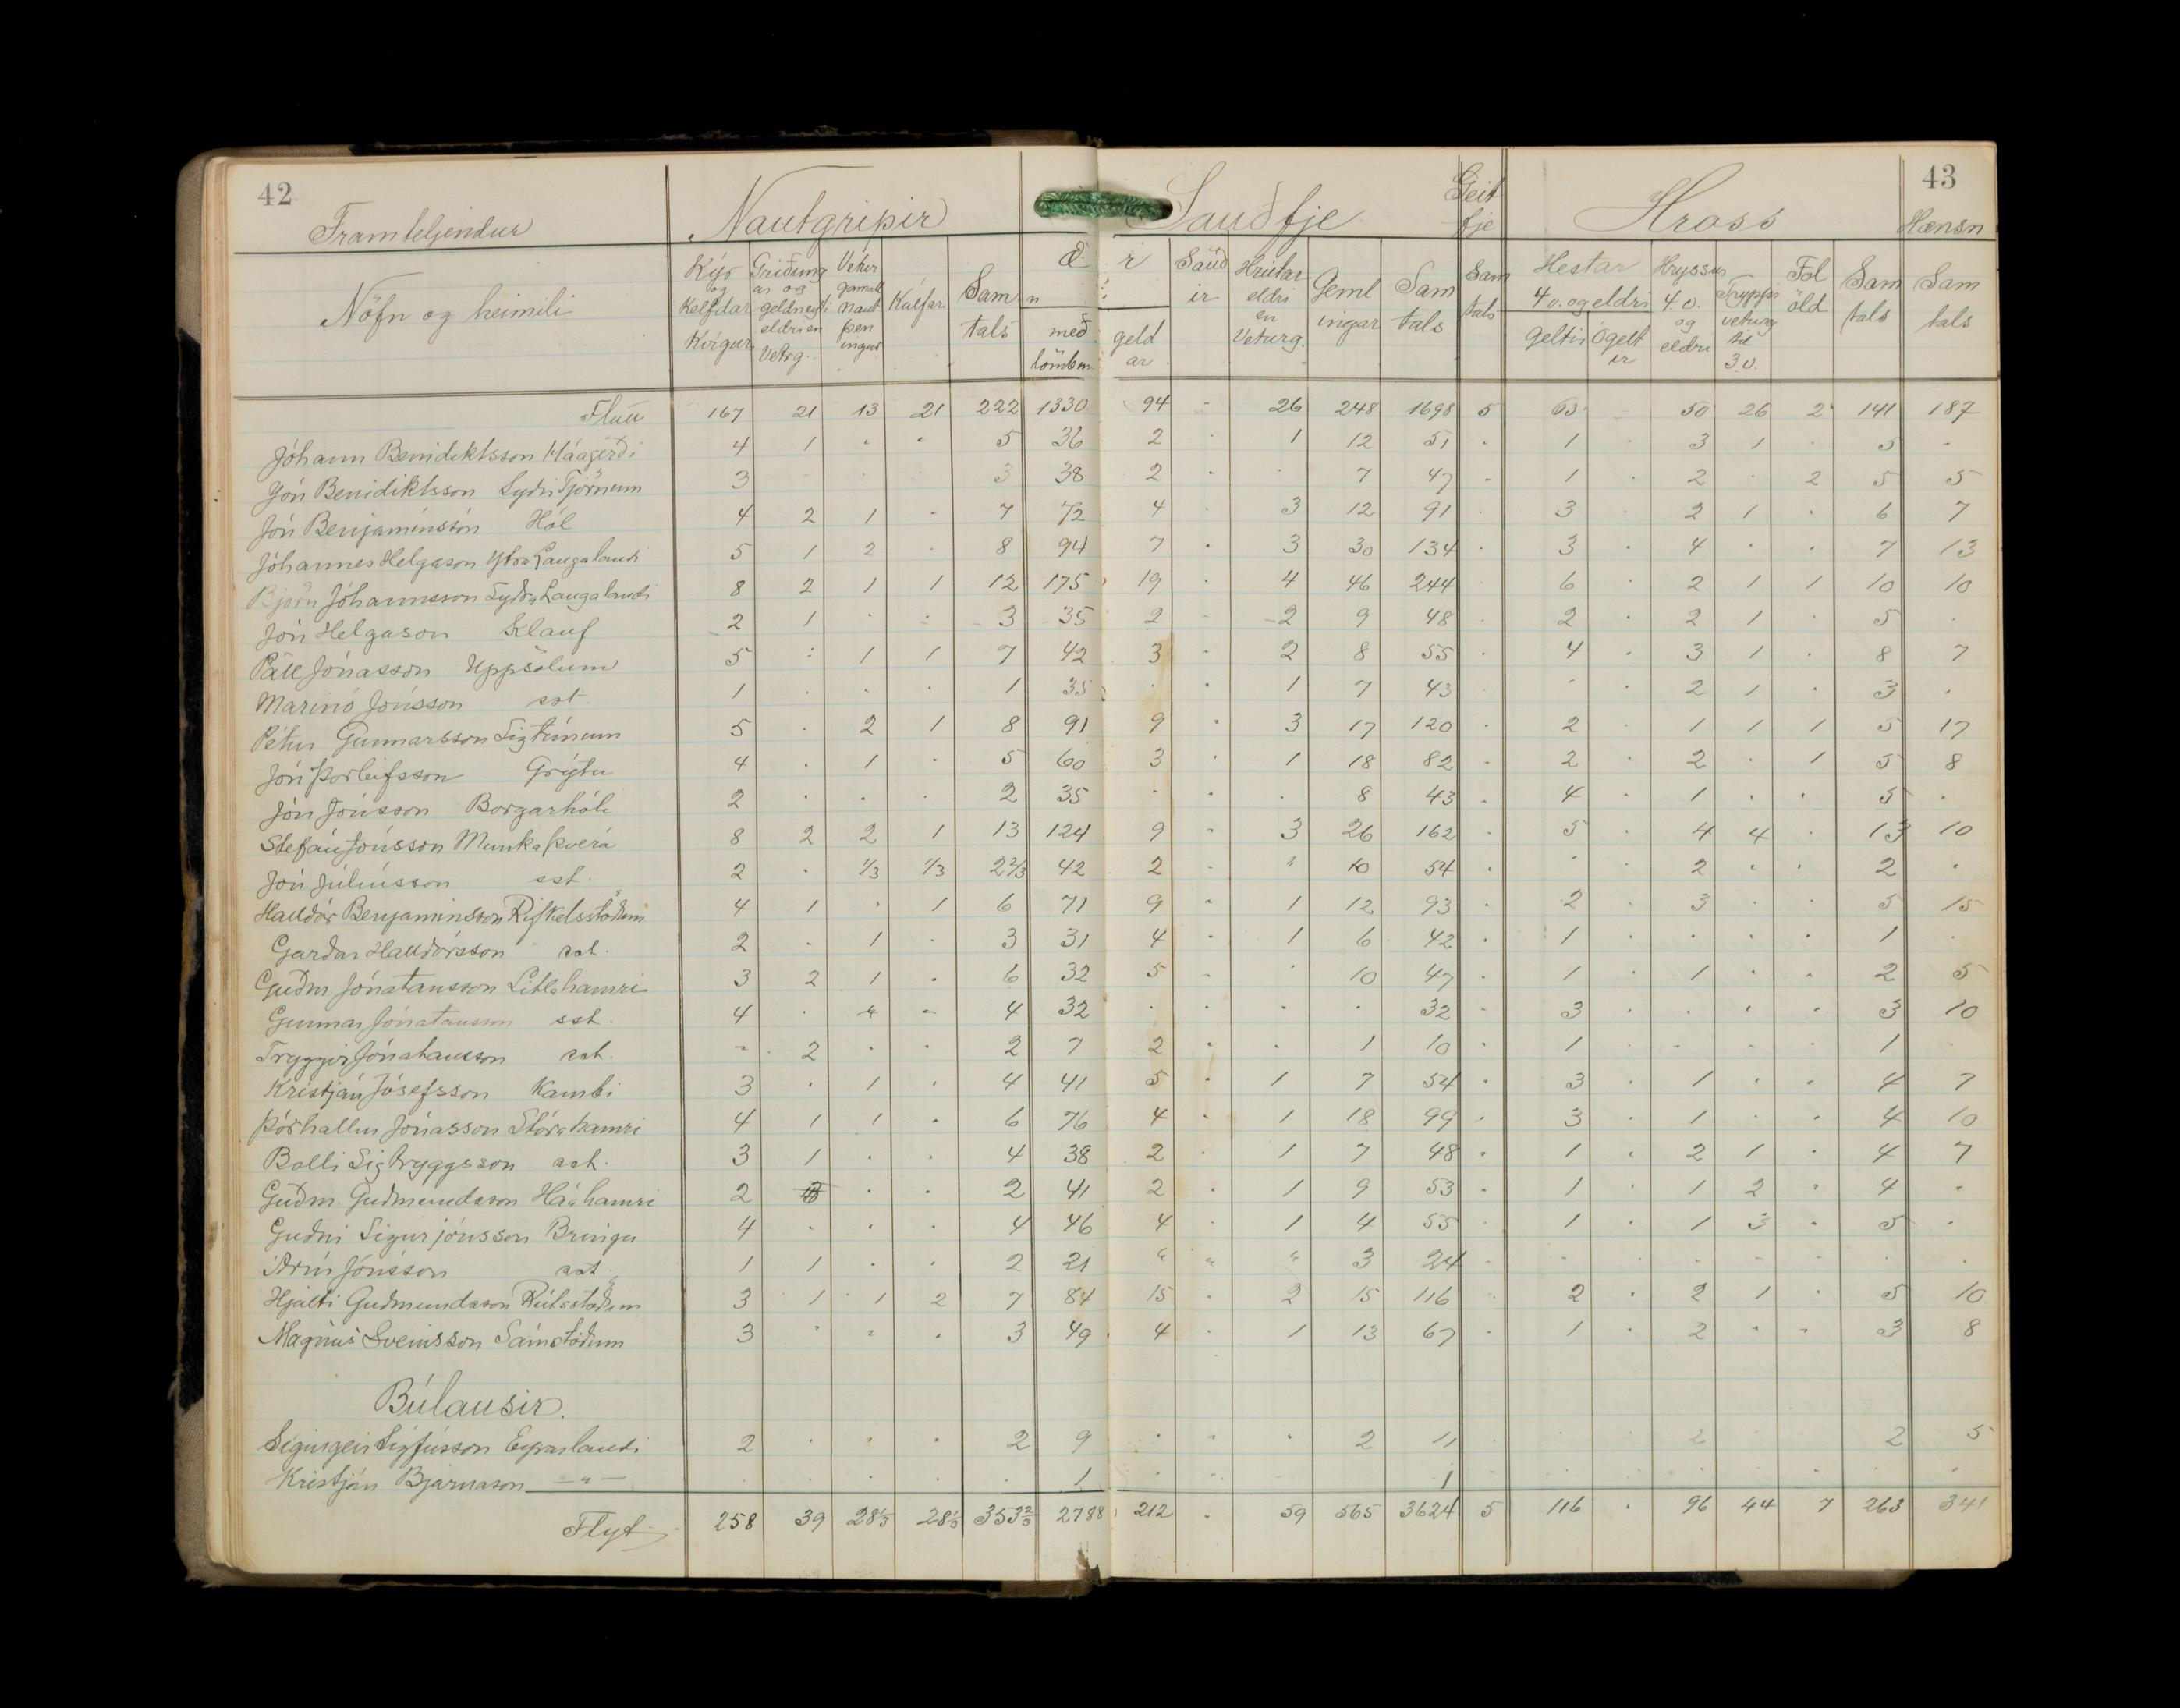 42 43
Framteljendur Nautgripir Sauðfje Geit fje Hross Hænsn
Nöfn og heimili Kýr og Kelfdar Kvígur Griðung ar og geldneyti eldri en Vetrg. Vetur gamall naut pen ingur Kálfar Sam tals Æ r n með lömbum i r geld ar Sauð ir Hrútar eldri en Veturg. Geml ingar Sam tals Sam tals Hestar 4 v. og eldri geltir ógelt ir Hryssur 4. v. og eldri Tryppi veturg til 3 v. Fol öld Sam tals Sam tals
Flutt 167 21 13 21 222 1330 94 - 26 248 1698 5 63 - 50 26 2 141 187
Jóhann Benidiktsson Háagerði 4 1 " " 5 36 2 . 1 12 51 . 1 . 3 1 . 5 .
Jón Benidiktsson Syðri Tjörnum 3 . . . 3 38 2 . . 7 47 . 1 . 2 . 2 5 5
Jón Benjamínsson Hól 4 2 1 . 7 72 4 . 3 12 91 . 3 . 2 1 . 6 7
Jóhannes Helgason Ytra Laugalandi 5 1 2 . 8 94 7 . 3 30 134 . 3 . 4 . . 7 13
Björn Jóhannsson Syðra Laugalandi 8 2 1 1 12 175 19 . 4 46 244 6 . 2 1 1 10 10
Jón Helgason Klauf 2 1 . . 3 35 2 . 2 9 48 . 2 . 2 1 . 5 .
Páll Jónasson Uppsölum 5 : 1 1 7 42 3 . 2 8 55 . 4 . 3 1 . 8 7
Marinó Jónsson sst. 1 . . . 1 35 . . 1 7 43 . . 2 1 . 3 .
Pétur Gunnarsson Sigtúnum 5 . 2 1 8 91 9 . 3 17 120 . 2 . 1 1 1 5 17
Jón Þorleifsson Grýtu 4 . 1 . 5 60 3 . 1 18 82 . 2 . 2 . 1 5 8
Jón Jónsson Borgarhóli 2 . . . 2 35 . . . 8 43 . 4 . 1 . . 5 .
Stefán Jónsson Munkaþverá 8 2 2 1 13 124 9 . 3 26 162 . 5 . 4 4 . 13 10
Jón Júlíusson sst. 2 . 1/3 1/3 2 2/3 42 2 . " 10 54 . . . 2 . . 2 .
Halldór Benjamínsson Rifkelsstöðum 4 1 . 1 6 71 9 . 1 12 93 . 2 . 3 . . 5 15
Garðar Halldórsson sst. 2 . 1 . 3 31 4 . 1 6 42 . 1 . . . . 1 .
Guðm. Jónatansson Litlahamri 3 2 1 . 6 32 5 . . 10 47 . 1 . 1 . . 2 5
Gunnar Jónatansson sst. 4 . " " 4 32 . . . . 32 . 3 . . . . 3 10
Tryggvi Jónatansson sst. - 2 . . 2 7 2 . . 1 10 . 1 . . . . 1
Kristján Jósefsson Kambi 3 . 1 . 4 41 5 . 1 7 54 . 3 . 1 . . 4 7
Þórhallur Jónasson Stórahamri 4 1 1 . 6 76 4 . 1 18 99 . 3 . 1 . . 4 10
Bolli Sigtryggsson sst. 3 1 . . 4 38 2 . 1 7 48 . 1 . 2 1 . 4 7
Guðm. Guðmundsson Háahamri 2 . . 2 41 2 . 1 9 53 . 1 . 1 2 . 4 .
Guðni Sigurjónsson Bringu 4 . . . 4 46 4 . 1 4 55 . 1 . 1 3 . 5 .
Árni Jónsson sst. 1 1 . . 2 21 " " " 3 24 . . . . . . . .
Hjalti Guðmundsson Rútsstöðum 3 1 1 2 7 84 15 . 2 15 116 . 2 . 2 1 . 5 10
Magnús Sveinsson Sámsstöðum 3 " " . 3 49 4 . 1 13 67 . 1 . 2 . . 3 8
Búlausir.
Sigurgeir Sigfússon Eyrarlandi 2 . . . 2 9 . . . 2 11 2 2 5
Kristján Bjarnason — " — . . . . . 1 . . 1 . . . . . . . .
Flyt 258 39 28 1/3 28 1/3 353 2/3 2788 212 . 59 565 3624 5 116 . 96 44 7 263 341